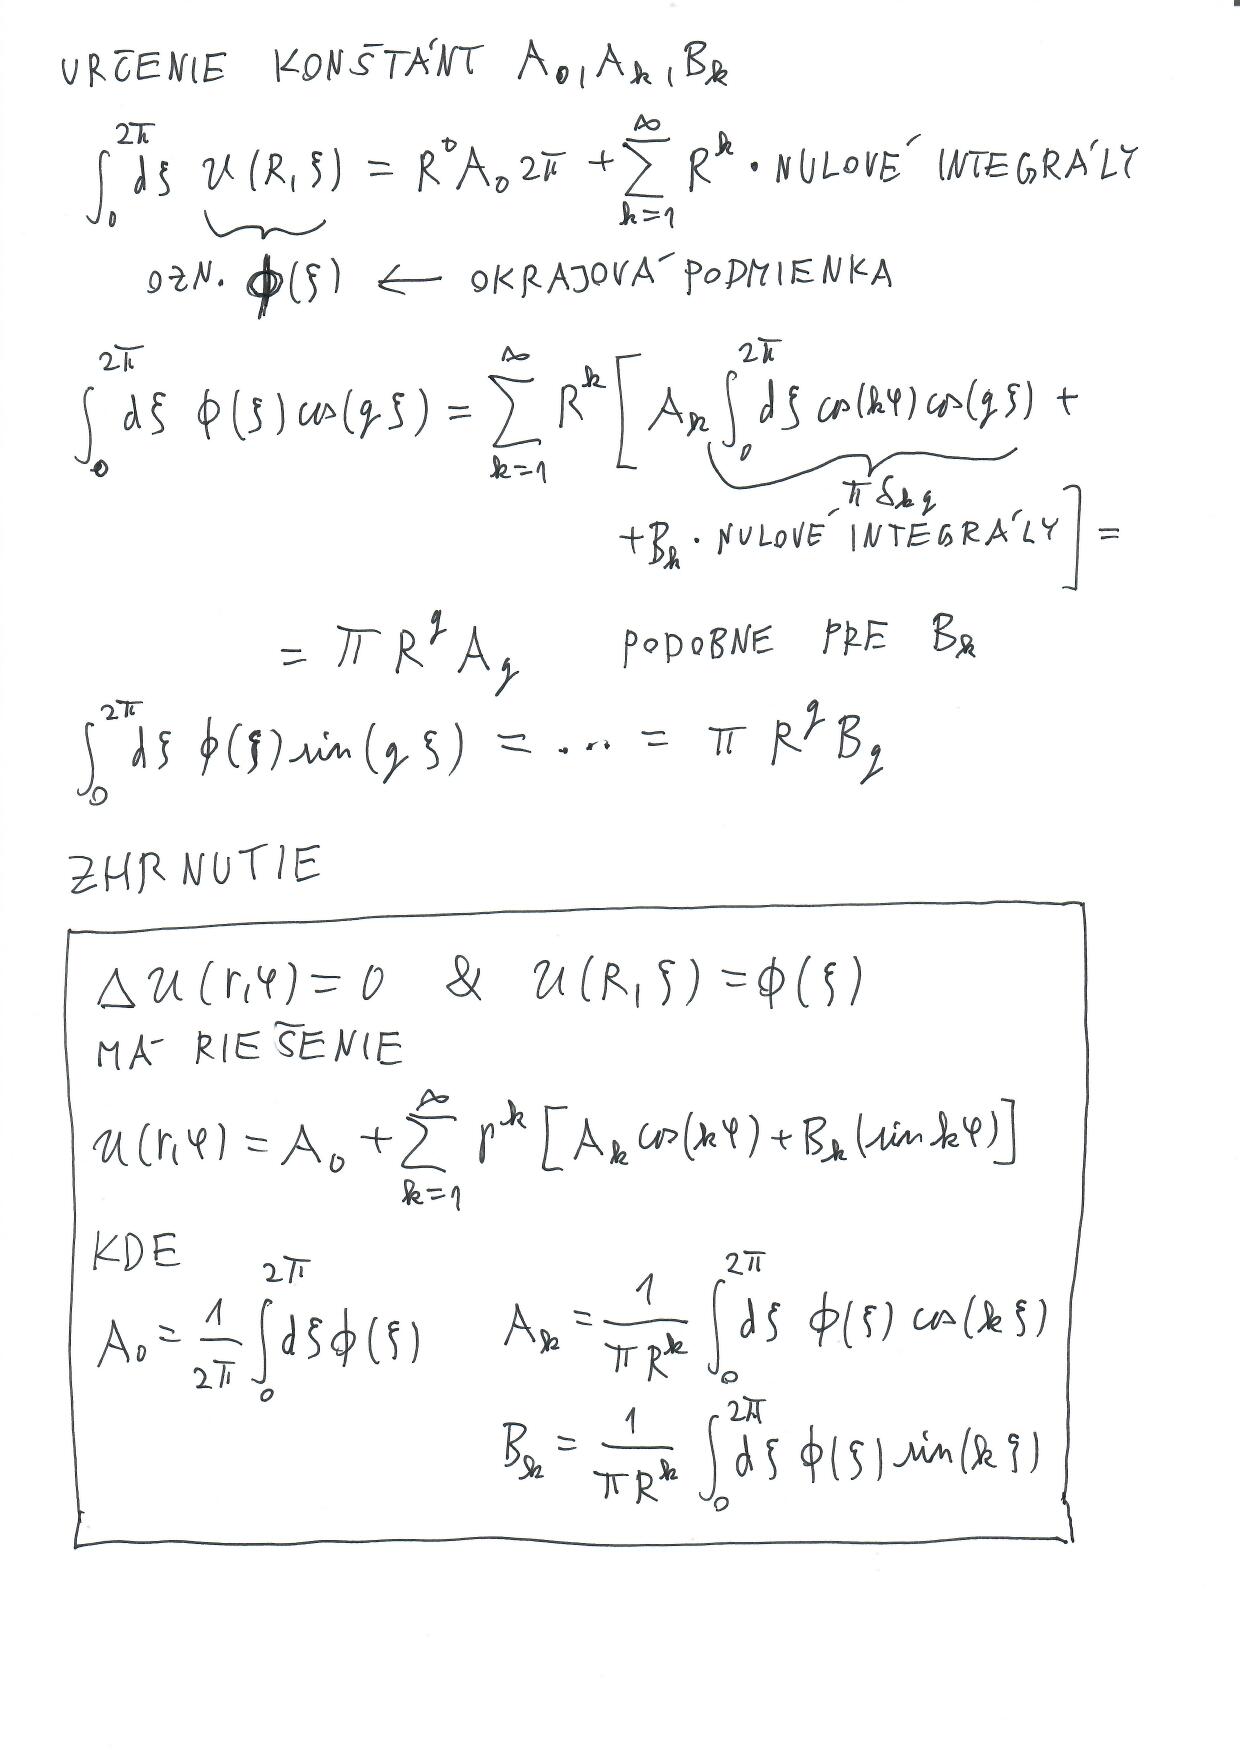 URČENIE KONŠTÁNT A₀, Aₖ, Bₖ
∫₀^{2π} dξ u(R, ξ) = R⁰ A₀ 2π + ∑_{k=1}^{∞} R^k · NULOVÉ INTEGRÁLY
OZN. ϕ(ξ) ← OKRAJOVÁ PODMIENKA
∫₀^{2π} dξ ϕ(ξ) cos(qξ) = ∑_{k=1}^{∞} R^k [ A_k ∫₀^{2π} dξ cos(kφ) cos(qξ) +
π δ_{kq}
+ B_k · NULOVÉ INTEGRÁLY ] =
= π R^q A_q PODOBNE PRE B_k
∫₀^{2π} dξ ϕ(ξ) sin(qξ) = ... = π R^q B_q
ZHRNUTIE
Δu(r,φ) = 0 & u(R, ξ) = ϕ(ξ)
MÁ RIEŠENIE
u(r,φ) = A₀ + ∑_{k=1}^{∞} r^k [A_k cos(kφ) + B_k (sin kφ)]
KDE
A₀ = 1/2π ∫₀^{2π} dξ ϕ(ξ) A_k = 1/πR^k ∫₀^{2π} dξ ϕ(ξ) cos(kξ)
B_k = 1/πR^k ∫₀^{2π} dξ ϕ(ξ) sin(kξ)